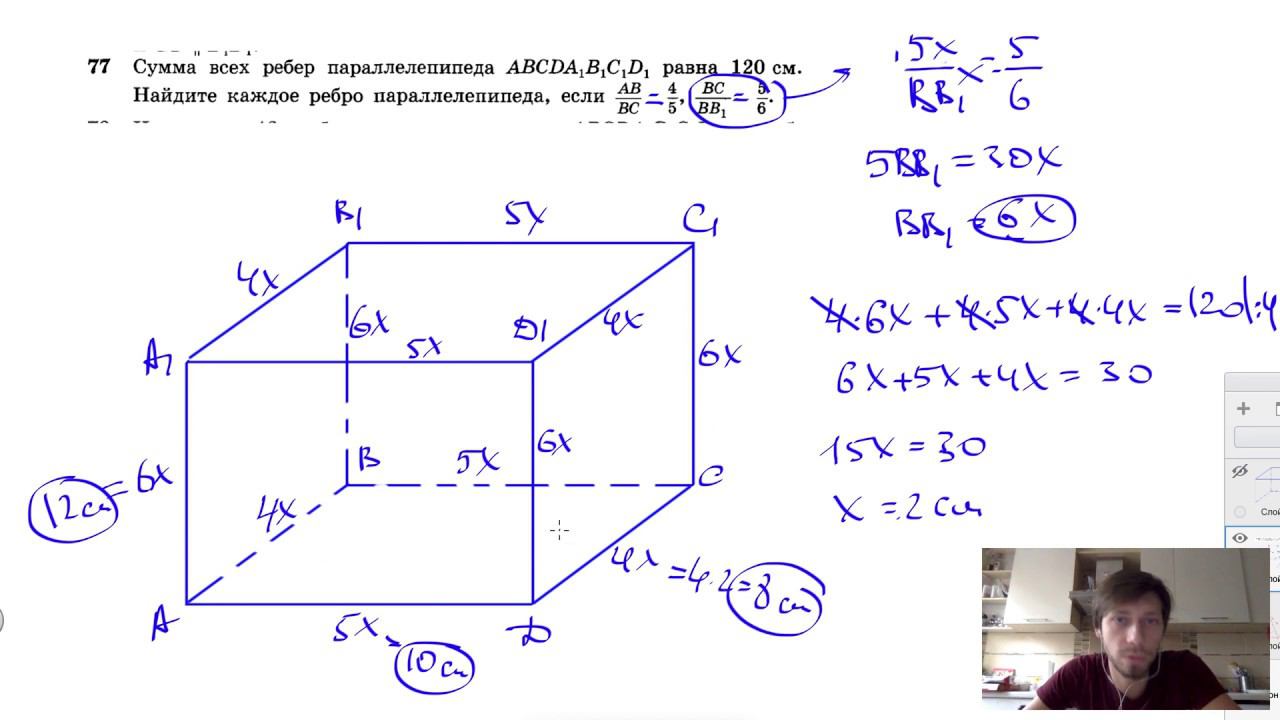 77 Сумма всех ребер параллелепипеда ABCDA₁B₁C₁D₁ равна 120 см.
Найдите каждое ребро параллелепипеда, если AB/BC = 4/5, BC/BB₁ = 5/6.
5x/BB₁ = 5/6
5BB₁ = 30x
BB₁ = 6x
4·6x + 4·5x + 4·4x = 120 |:4
6x + 5x + 4x = 30
15x = 30
x = 2 см
B₁ 5x C₁
4x
6x D₁ 4x
A₁ 5x 6x
B 5x 6x C
12 см = 6x
4x
4x = 4·2 = 8 см
A 5x D
10 см
Слой